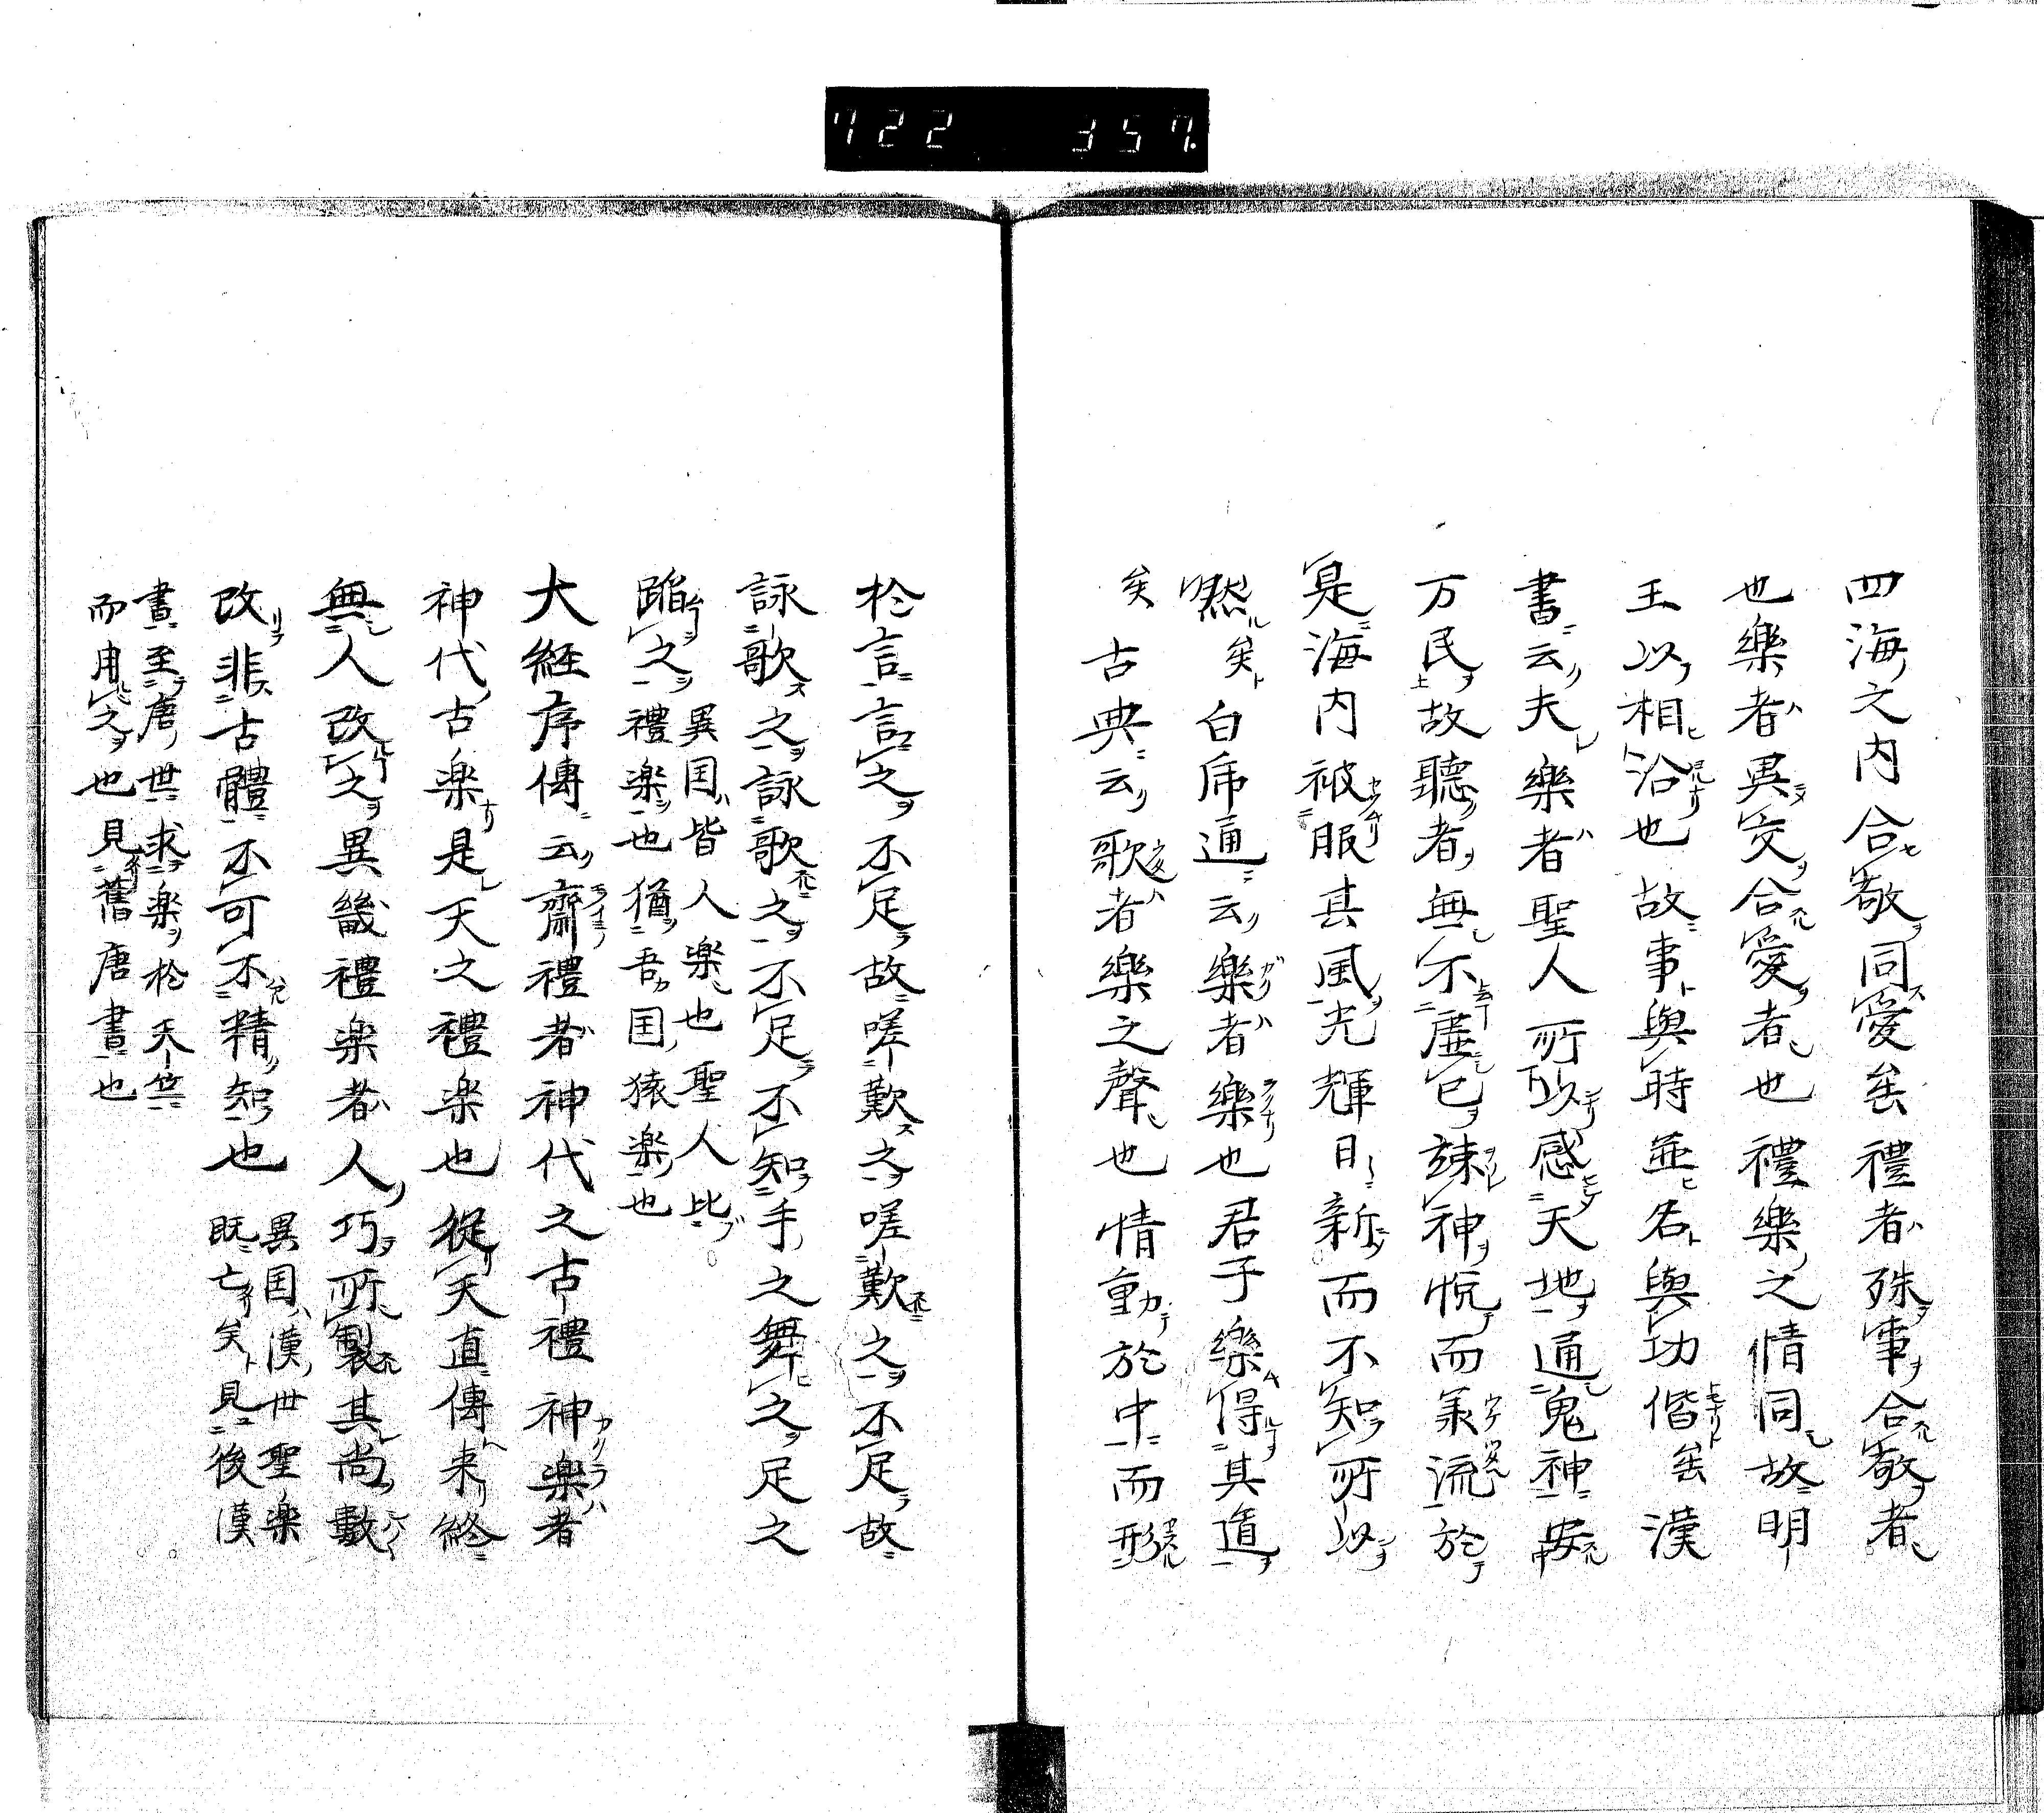 722 357.
四海之内合敬同愛矣禮者殊事合敬者
也樂者異文合愛者也禮樂之情同故明
王以相沿也故事與時並名與功偕矣漢
書云夫樂者聖人所以感天地通鬼神安
万民故聽者無不虚己竦神悦而承流於
是海内被服其風光輝日新而不知所以
然矣白虎通云樂者樂也君子樂得其道
矣古典云歌者樂之聲也情動於中而形
於言言之不足故嗟歎之嗟歎之不足故
詠歌之詠歌之不足不知手之舞之足之
蹈之
異国皆人楽也聖人比
禮楽也猶吾国猿楽也
大経序傳云齋禮者神代之古禮神楽者
神代古楽是天之禮楽也從天直傳来終
無人改之異畿禮楽者人巧所製其尚數
改非古體不可不精知也
異国漢世聖楽
既亡矣見後漢
書至唐世求楽於天竺
而用之也見舊唐書也